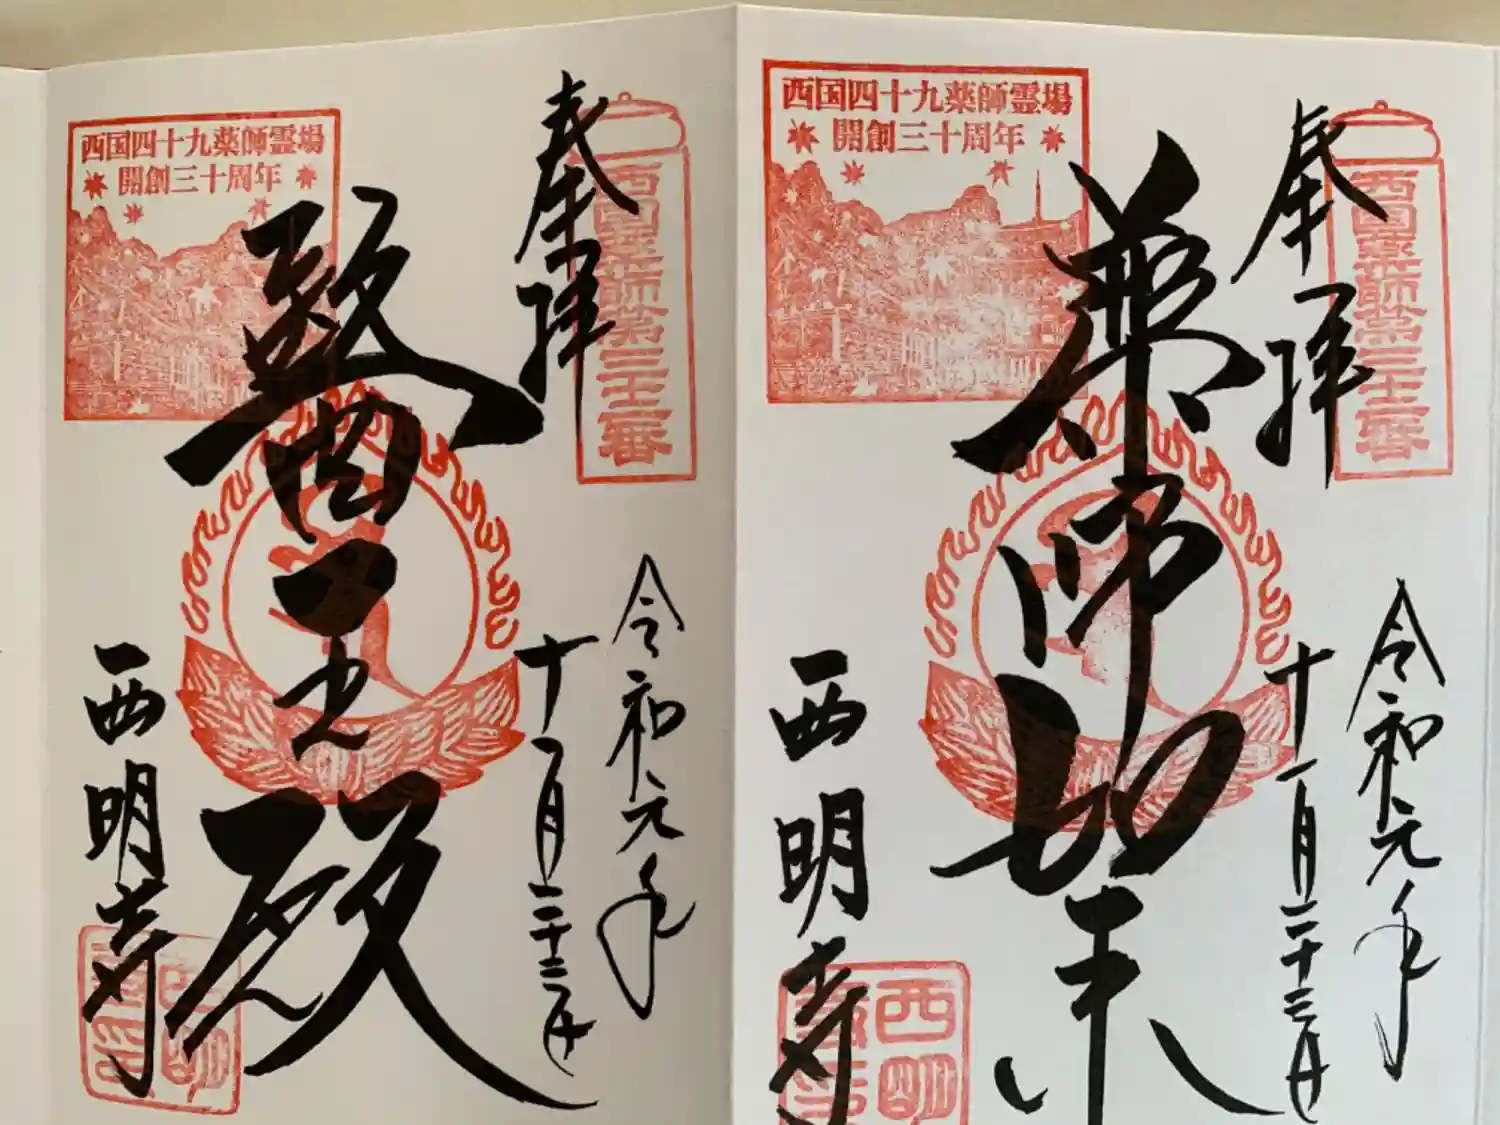 奉拝
西国薬師第三十二番
西国四十九薬師霊場
開創三十周年
薬師如来
令和元年
十一月二十三日
西明寺
奉拝
西国薬師第三十二番
西国四十九薬師霊場
開創三十周年
醫王殿
令和元年
十一月二十三日
西明寺